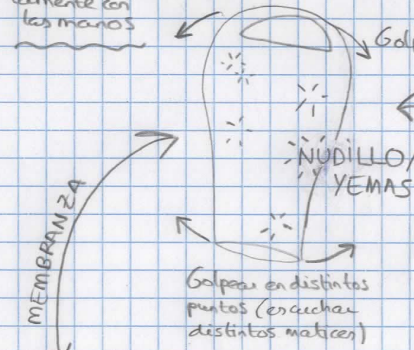 las manos
NUDILLO/
YEMAS
MEMBRANZA
Golpear en distintos
puntos (escuchar
distintos matices)